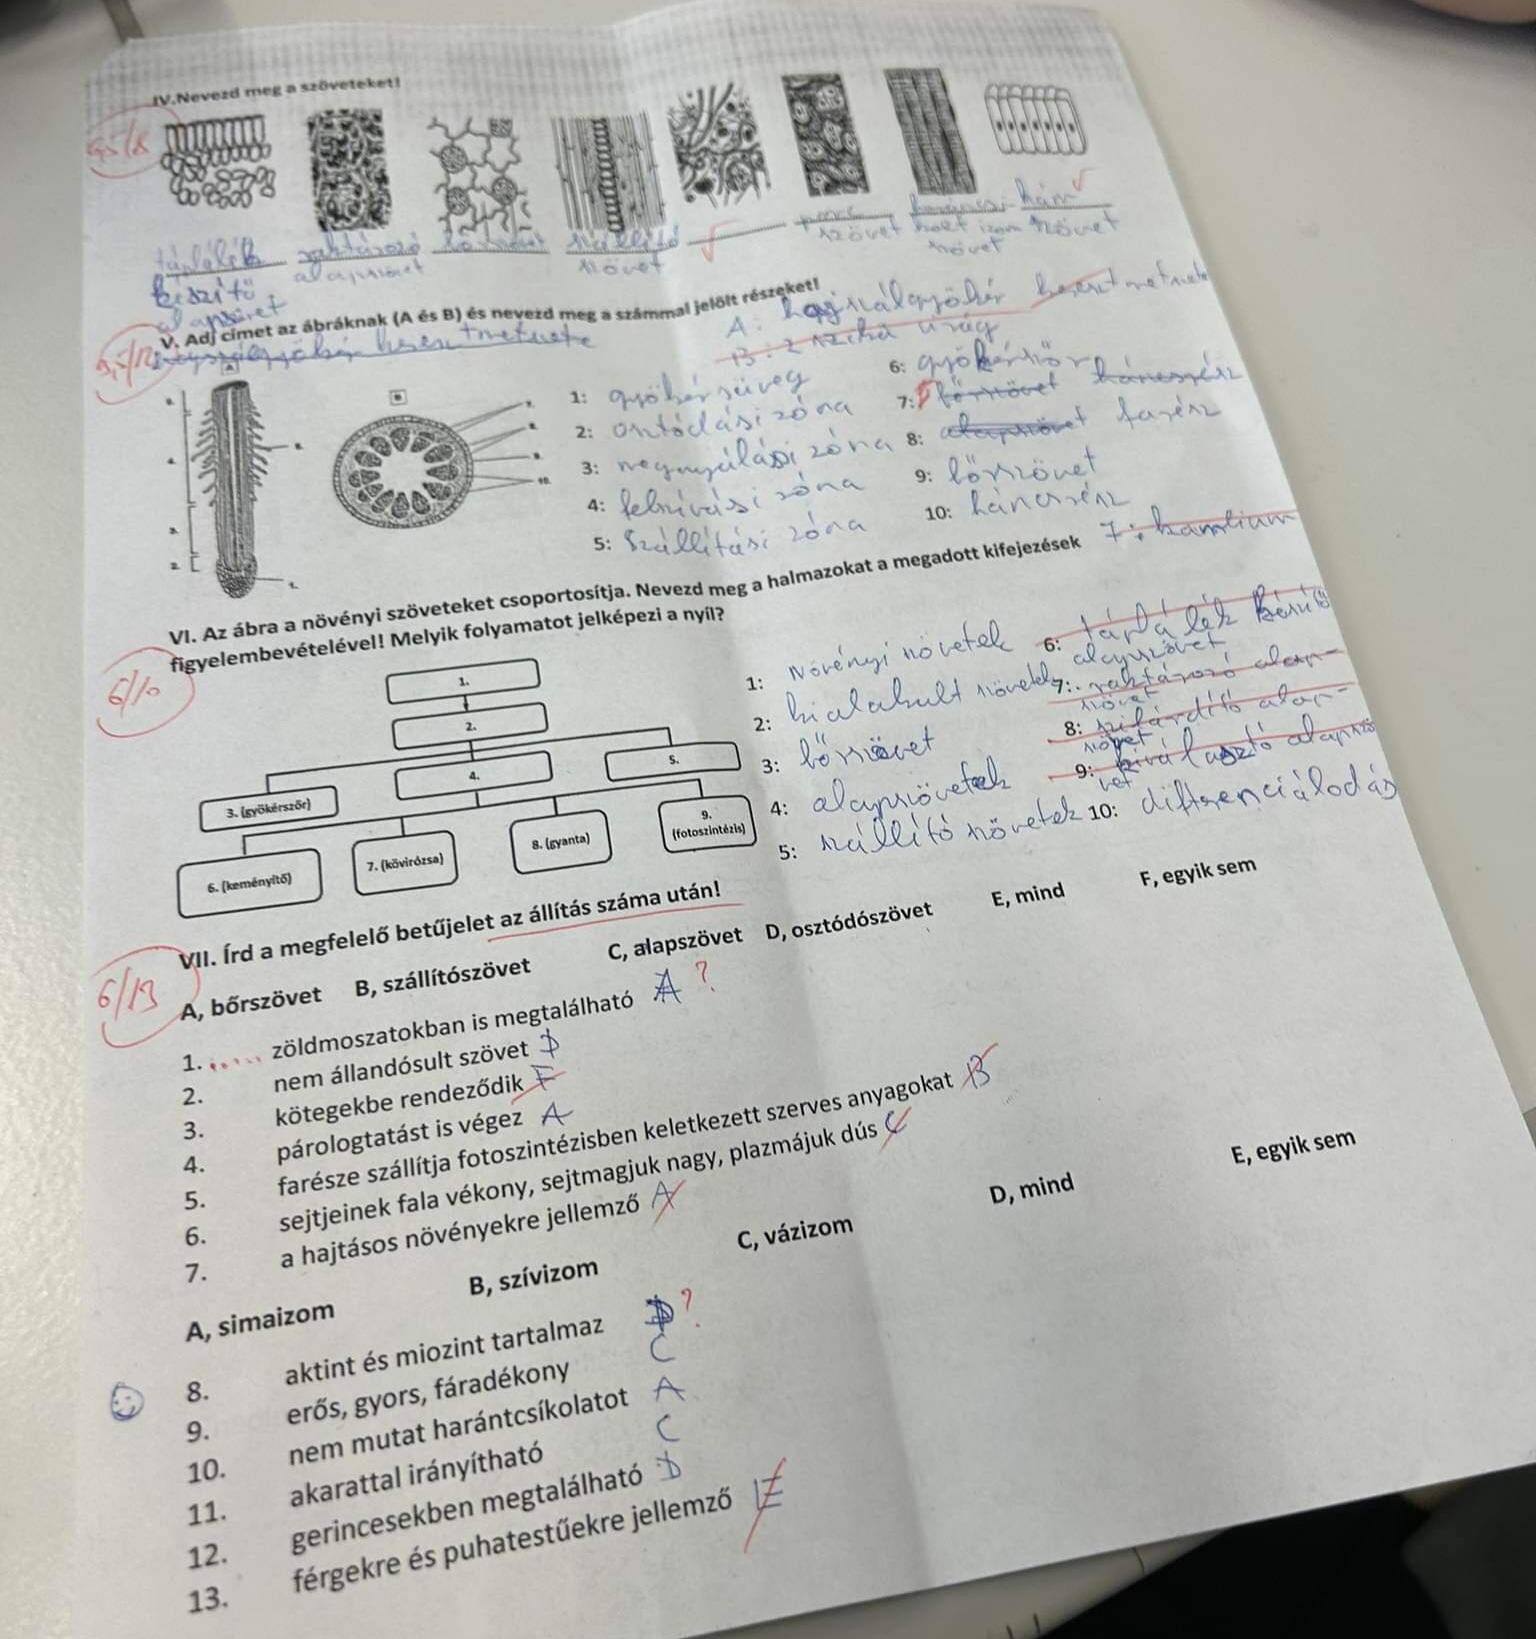 IV.Nevezd meg a szöveteket!
táplálék
készítő
alapszövet
raktározó
alapszövet
szállító
szövet
porc
szövet
harántcsí-
kolt izom
szövet
hám
szövet
V. Adj címet az ábráknak (A és B) és nevezd meg a számmal jelölt részeket!
A: hajszálgyökér keresztmetszete
B: 2 szikű virág
A
B
1: gyökérsüveg
2: osztódási zóna
3: megnyúlási zóna
4: felszívási zóna
5: Szállítási zóna
6: gyökérszőr
7: bőrszövet háncsrész
8: alapszövet farész
9: bőrszövet
10: háncsrész
7: kambium
VI. Az ábra a növényi szöveteket csoportosítja. Nevezd meg a halmazokat a megadott kifejezések
figyelembevételével! Melyik folyamatot jelképezi a nyíl?
6/10
1.
2.
3. (gyökérszőr)
4.
5.
6. (keményítő)
7. (kövirózsa)
8. (gyanta)
9.
(fotoszintézis)
1: Növényi szövetek
2: kialakult szövetek
3: bőrszövet
4: alapszövetek
5: szállító szövetek
6: táplálék készítő
alapszövet
7: raktározó alap-
szövet
8: szilárdító alap-
szövet
9: kiválasztó alapszö
vet
10: differenciálódás
VII. Írd a megfelelő betűjelet az állítás száma után!
6/13
A, bőrszövet B, szállítószövet C, alapszövet D, osztódószövet E, mind F, egyik sem
1. ..... zöldmoszatokban is megtalálható A ?
2. nem állandósult szövet D
3. kötegekbe rendeződik F
4. párologtatást is végez A
5. farésze szállítja fotoszintézisben keletkezett szerves anyagokat B
6. sejtjeinek fala vékony, sejtmagjuk nagy, plazmájuk dús C
7. a hajtásos növényekre jellemző A
A, simaizom B, szívizom C, vázizom D, mind E, egyik sem
8. aktint és miozint tartalmaz D ?
9. erős, gyors, fáradékony C
10. nem mutat harántcsíkolatot A
11. akarattal irányítható C
12. gerincesekben megtalálható D
13. férgekre és puhatestűekre jellemző E